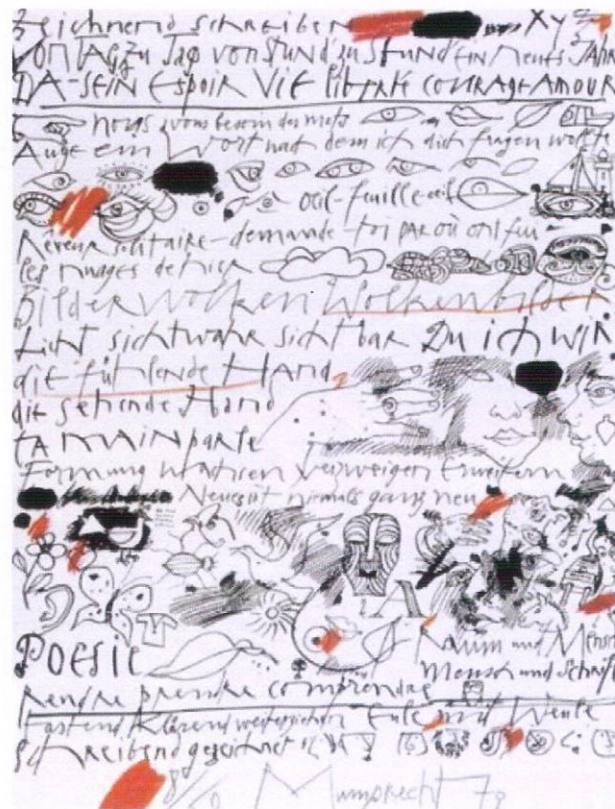 zeichnend schreiben XY Z
von Tag zu Tag von Stund zu Stund ein neues Jahr
DA-SEIN Espoir VIE liberté courage Amour
nous avons besoin des mots
Auge ein Wort nach dem ich dich fragen wollte
oeil-feuille-oeil
Reveur solitaire-demande-toi par où ont fui
les nuages de hier
Bilder Wolken Wolkenbilder
Licht sichtwahr sichtbar Du ich WIR
die fühlende Hand
die sehende Hand
TA MAIN parle
Formung wachsen verzweigen Erweitern
Neues ist niemals ganz neu
POESIE
Raum und Mensch
Mensch und Schrift
Rendre prendre comprendre
tastend klärend
Schreibend gezeichnet
Mumprecht 78